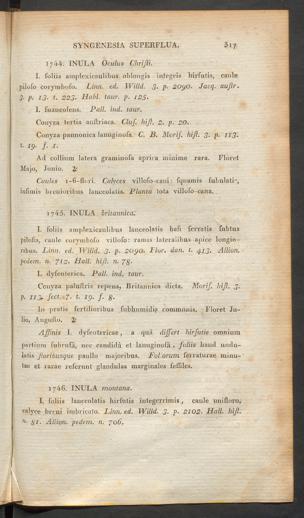 SYNGENESIA SUPERFLUA. 317
1744. INULA Oculus Christi.
I. foliis amplexicaulibus oblongis integris hirsutis, caule
piloso corymboso. Linn. ed. Willd. 3. p. 2090. Jacq. austr.
3. p. 13. t. 223. Habl. taur. p. 125.
I. suaveolens. Pall. ind. taur.
Conyza tertia austriaca. Clus. hist. 2. p. 20.
Conyza pannonica lanuginosa. C. B. Moris. hist. 3. p. 113.
t. 19. f. 1.
Ad collium latera graminosa aprica minime rara. Floret
Majo, Junio. ♃
Caulis 1-6-flori. Calyces villoso-cani: squamis subulatis,
infimis brevioribus lanceolatis. Planta tota villoso-cana.
1745. INULA britannica.
I. foliis amplexicaulibus lanceolatis basi serratis subtus
pilosis, caule corymboso villoso: ramis lateralibus apice longio-
ribus. Linn. ed. Willd. 3. p. 2090. Flor. dan. t. 413. Allion.
pedem. n. 712. Hall. hist. n. 78.
I. dysenterica. Pall. ind. taur.
Conyza palustris repens, Britannica dicta. Moris. hist. 3.
p. 113. sect. 7. t. 19. f. 8.
In pratis fertilioribus subhumidis communis. Floret Ju-
lio, Augusto. ♃
Affinis I. dysentericae, a quâ differt hirsutie omnium
partium subrusâ, nec candidâ et lanuginosâ, foliis haud undu-
latis floribusque paullo majoribus. Foliorum serraturae minu-
tae et rarae referunt glandulas marginales sessiles.
1746. INULA montana.
I. foliis lanceolatis hirsutis integerrimis, caule unifloro,
calyce brevi imbricato. Linn. ed. Willd. 3. p. 2102. Hall. hist.
n. 81. Allion. pedem. n. 706.